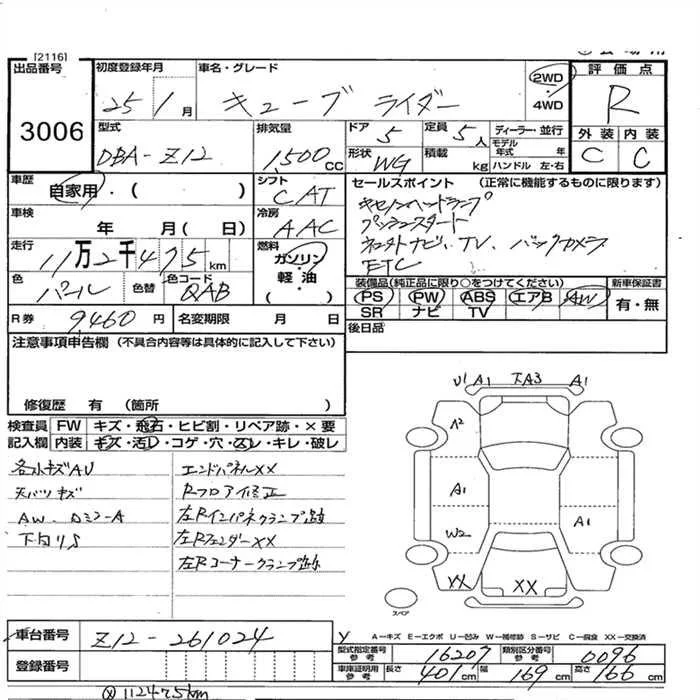 [2116]
出品番号
3006
初度登録年月
25 1 月
車名・グレード
キューブ ライダー
2WD
・
4WD
評価点
R
外装 内装
C C
型式
DBA-Z12
排気量
1,500 CC
ドア
5
定員
5 人
形状
WG
積載
kg
ディーラー・並行
モデル年式 年
ハンドル 左・右
車歴
自家用・( )
シフト
CAT
車検
年 月( 日)
冷房
AAC
走行
11万2千475km
燃料
ガソリン・
軽油・
( )
色
パール
色替
色コード
QAB
R券 9,460 円
名変期限 月 日
セールスポイント (正常に機能するものに限ります)
キセノンヘッドランプ
プッシュスタート
ナビ、TV、バックカメラ
ETC
装備品(純正品に限り○をつけてください)
PS PW ABS エアB AW
SR ナビ TV
新車保証書
有・無
後日品
注意事項申告欄 (不具合内容等は具体的に記入して下さい)
修復歴 有 (箇所 )
検査員
記入欄
FW キズ・飛石・ヒビ割・リペア跡・×要
内装 キズ・汚レ・コゲ・穴・スレ・キレ・破レ
各小キズAU
天バツキズ
AW、ロミラーA
下回りS
エンドパネルXX
Rフロア修正
左Rインパネクランプ跡
左RフェンダーXX
左Rコーナークランプ跡
U1 A1 下A3 A1
A2
A1
W2
A1
XX
XX
スペア
A-キズ E-エクボ U-凹み W-補修跡 S-サビ C-腐食 XX-交換済
車台番号
Z12-261024
登録番号
型式指定番号
参考
16207
類別区分番号
参考
0096
車庫証明用
参考
長さ 401cm 幅 169cm 高さ 166cm
112475km